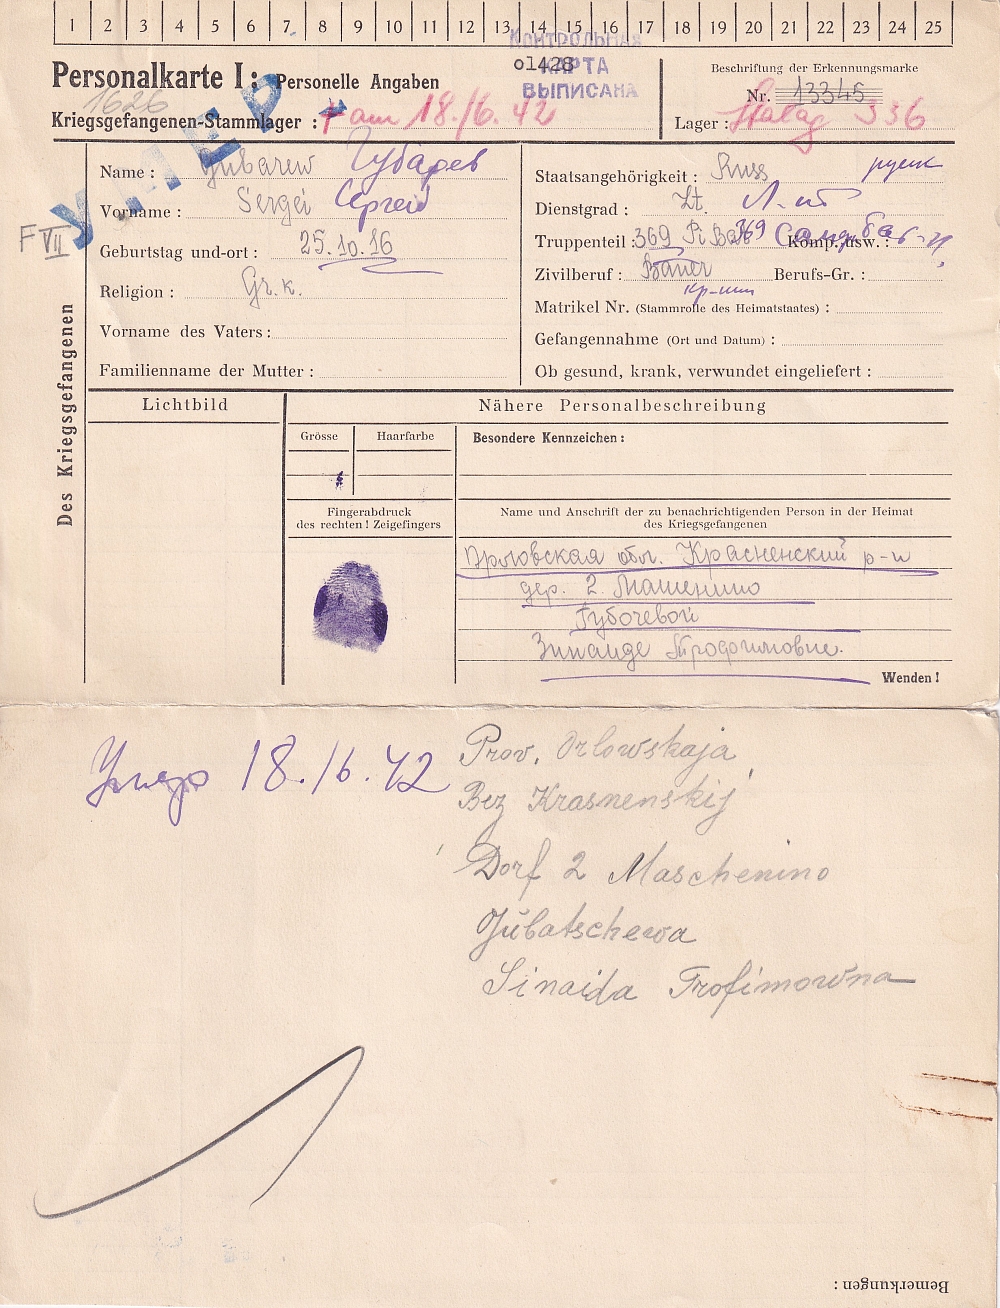 1 2 3 4 5 6 7 8 9 10 11 12 13 14 15 16 17 18 19 20 21 22 23 24 25
КОНТРОЛЬНАЯ
КАРТА
ВЫПИСАНА
01428
Personalkarte I: Personelle Angaben
1626
Kriegsgefangenen-Stammlager: † am 18./6. 42
УМЕР
Beschriftung der Erkennungsmarke
Nr. 13345
Lager: Stalag 336
F VII
Des Kriegsgefangenen
Name: Gubarew Губарев
Vorname: Sergei Сергей
Geburtstag und-ort: 25.10.16
Religion: Gr. k.
Vorname des Vaters:
Familienname der Mutter:
Staatsangehörigkeit: Russ русск
Dienstgrad: Lt. Л-нт
Truppenteil: 369 Pi Bat 369 Сапер бат-н Komp. usw.:
Zivilberuf: Bauer Berufs-Gr.:
кр-нин
Matrikel Nr. (Stammrolle des Heimatstaates):
Gefangennahme (Ort und Datum):
Ob gesund, krank, verwundet eingeliefert:
Lichtbild
Nähere Personalbeschreibung
Grösse Haarfarbe Besondere Kennzeichen:
Fingerabdruck
des rechten! Zeigefingers
Name und Anschrift der zu benachrichtigenden Person in der Heimat
des Kriegsgefangenen
Орловская обл. Красненский р-н
дер. 2. Машенино
Губочевой
Зинаиде Трофимовне.
Wenden!
Умер 18./6. 42
Prov. Orlowskaja
Bez Krasnenskij
Dorf 2 Maschenino
Gubatschewa
Sinaida Trofimowna
Bemerkungen: